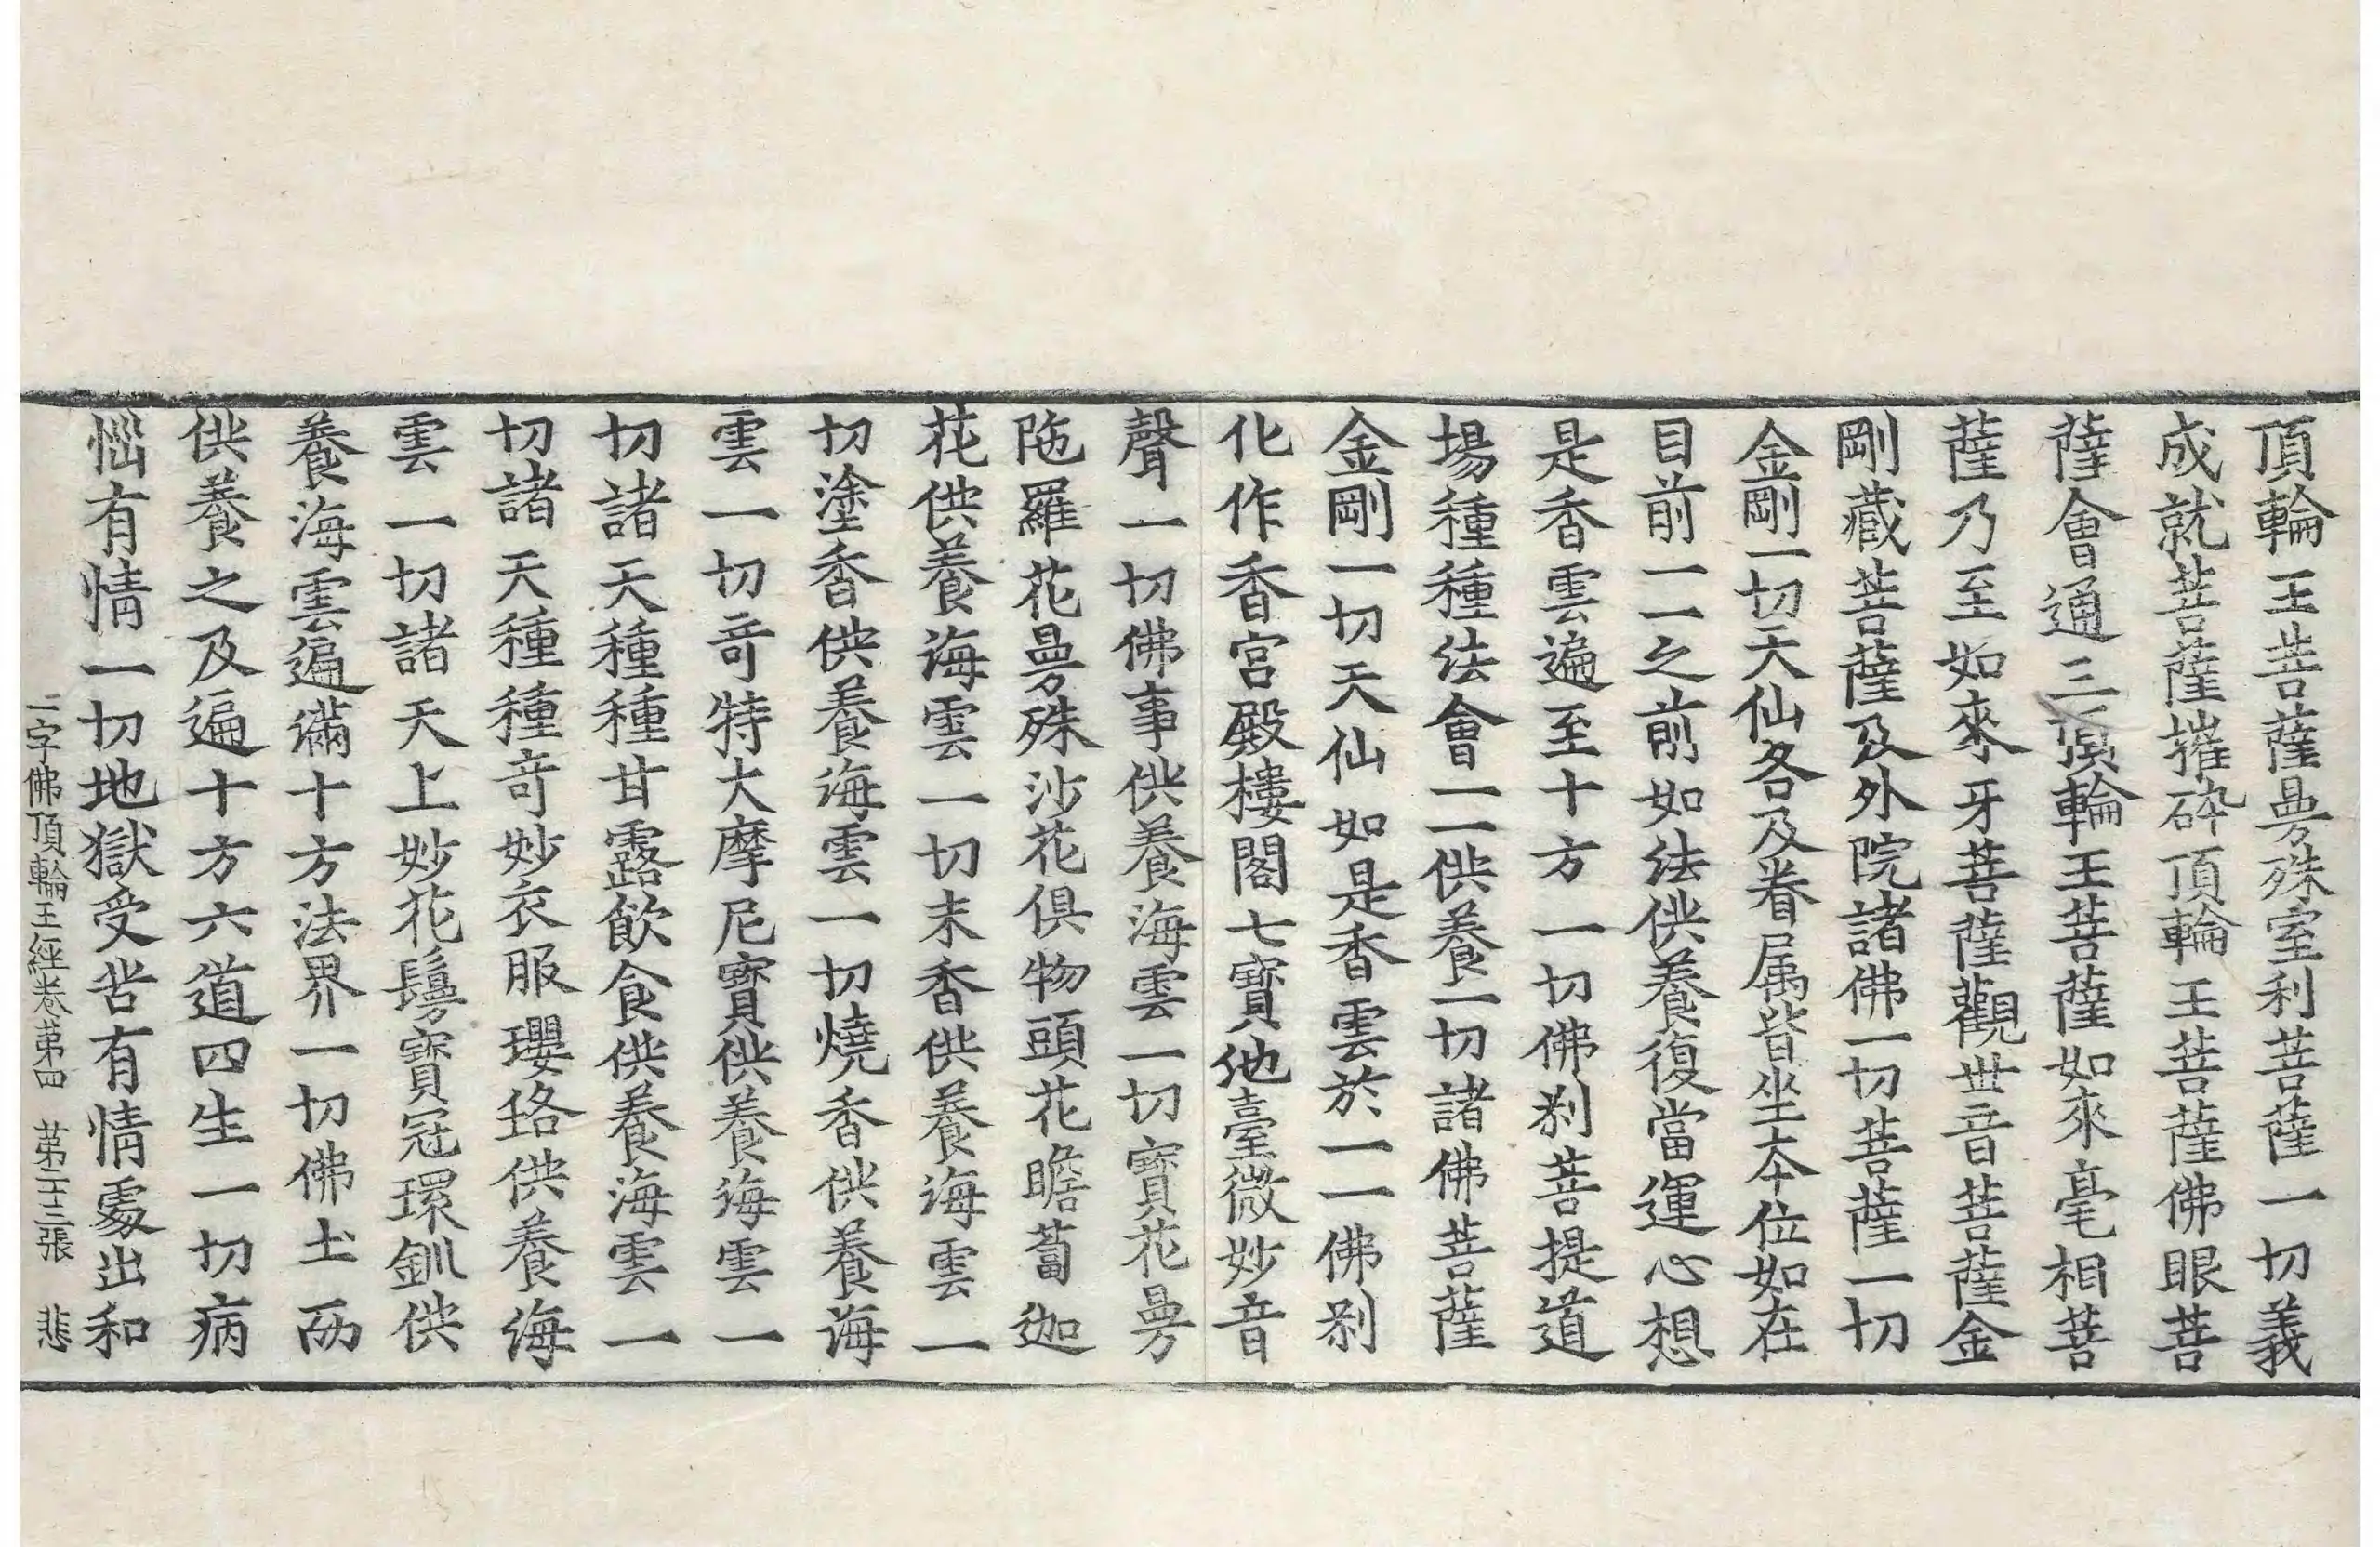 頂輪王菩薩曼殊室利菩薩一切義
成就菩薩摧碎頂輪王菩薩佛眼菩
薩會通三頂輪王菩薩如來毫相菩
薩乃至如來牙菩薩觀世音菩薩金
剛藏菩薩及外院諸佛一切菩薩一切
金剛一切天仙各及眷属皆坐本位如在
目前一一之前如法供養復當運心想
是香雲遍至十方一切佛刹菩提道
場種種法會一一供養一切諸佛菩薩
金剛一切天仙如是香雲於一一佛刹
化作香宮殿樓閣七寶池臺微妙音
聲一切佛事供養海雲一切寶花曼
陁羅花曼殊沙花俱物頭花瞻蔔迦
花供養海雲一切末香供養海雲一
切塗香供養海雲一切燒香供養海
雲一切竒特大摩尼寶供養海雲一
切諸天種種甘露飲食供養海雲一
切諸天種種竒妙衣服瓔珞供養海
雲一切諸天上妙花鬘寶冠環釧供
養海雲遍滿十方法界一切佛土而
供養之及遍十方六道四生一切病
惱有情一切地獄受苦有情處出和
一字佛頂輪王經卷苐四 苐二十三張 悲